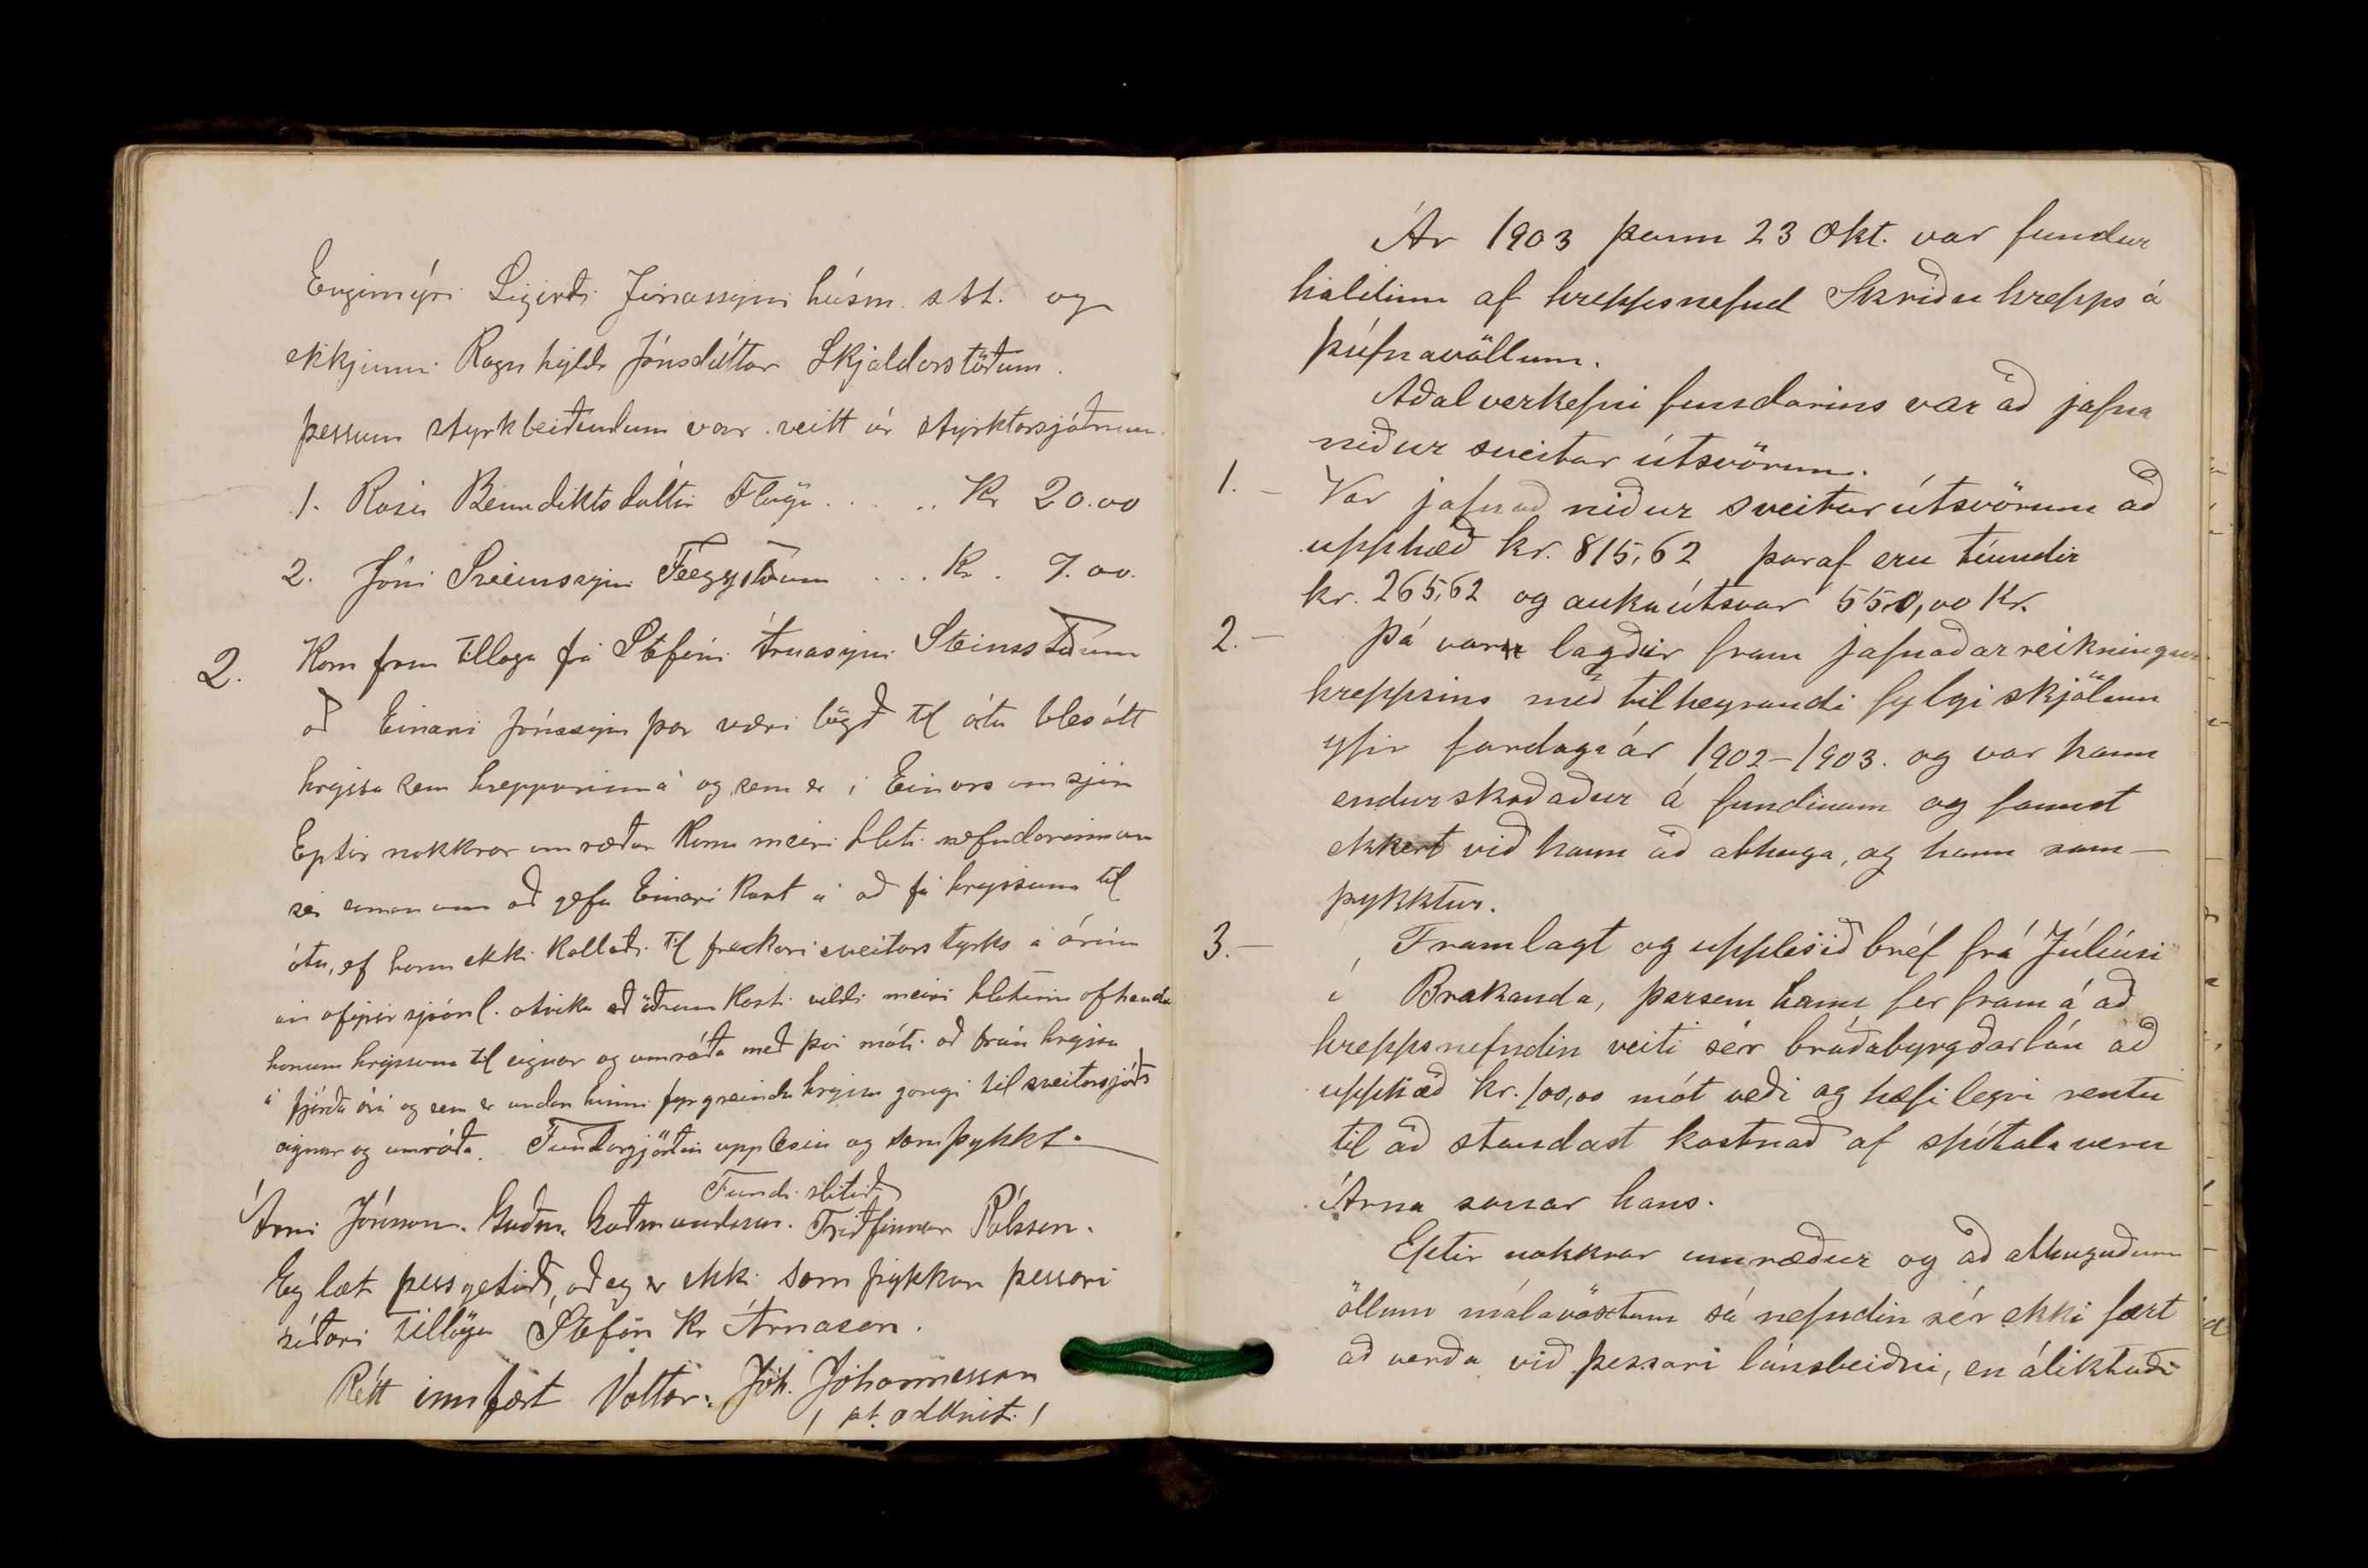 Engimýri Sigurði Jónassyni húsm. s st. og
ekkjunni Ragnhyldi Jónsdóttur Skjaldarstöðum.
þessum styrkbeiðendum var veitt úr styrktarsjóðnum.
1. Rósu Benediktsdóttir Flögu . . . .. Kr 20.00
2. Jóni Sveinssyni Féeggstöðum . . . Kr. 7.00.
2. Kom fram tillaga frá Stefáni Árnasyni Steinsstöðum
að Einari Jónssyni þar væri lögð til ótu blesótt
hryssa sem hreppurinn á og sem er í Einars umsjón
Eptir nokkrar umræður kom meiri hluti nefndarinnar
sér saman um að gefa Einari kost á að fá hryssuna til
ótu, ef hann ekki kallaði til frekari sveitarstyrks á árinu
án ofyrirsjáanl. atvika að öðrum kosti vildi meiri hlutinn afhenda
honum hryssuna til eignar og umráða með því móti að brún hryssa
á fjórða ári og sem er undan hinni fyrgreindu hryssu gangi til sveitarsjóðs
eignar og umráða. Fundargjörðin upplesin og samþykkt.
Fundi slitið
Árni Jónsson. Guðm. Guðmundsson. Friðfinnur Pálsson.
Eg læt þess getið, að eg er ekki samþykkur þessari
síðari tillögu Stefán Kr Árnason.
Rétt innfært Vottar: Jóh. Jóhannesson
/ pt. oddviti. /
Ár 1903 þann 23 Okt. var fundur
haldinn af hreppsnefnd Skriðu hrepps á
Þúfnavöllum.
Aðalverkefni fundarins var að jafna
niður sveitar útsvörum.
1. - Var jafnað niður sveitarútsvörum að
upphæð kr. 815,62 þaraf eru tíundir
kr. 265,62 og aukaútsvar 550,00 Kr.
2. - Þá var lagður fram jafnaðarreikningur
hreppsins með tilheyrandi fylgiskjölum
yfir fardaga ár 1902-1903. og var hann
endurskoðaður á fundinum og fannst
ekkert við hann að athuga, og hann sam-
þykktur.
3. - Framlagt og upplesið bréf frá Júlíusi
í Brakanda, þarsem hann fer fram á að
hreppsnefndin veiti sér bráðabyrgðarlán að
upphæð kr. 100,00 mót veði og hæfilegri rentu
til að standast kostnað af spítala veru
Árna sonar hans.
Eptir nokkrar umræður og að athuguðum
öllum málavöxtum sá nefndin sér ekki fært
að verða við þessari lánsbeiðni, en áliktaði